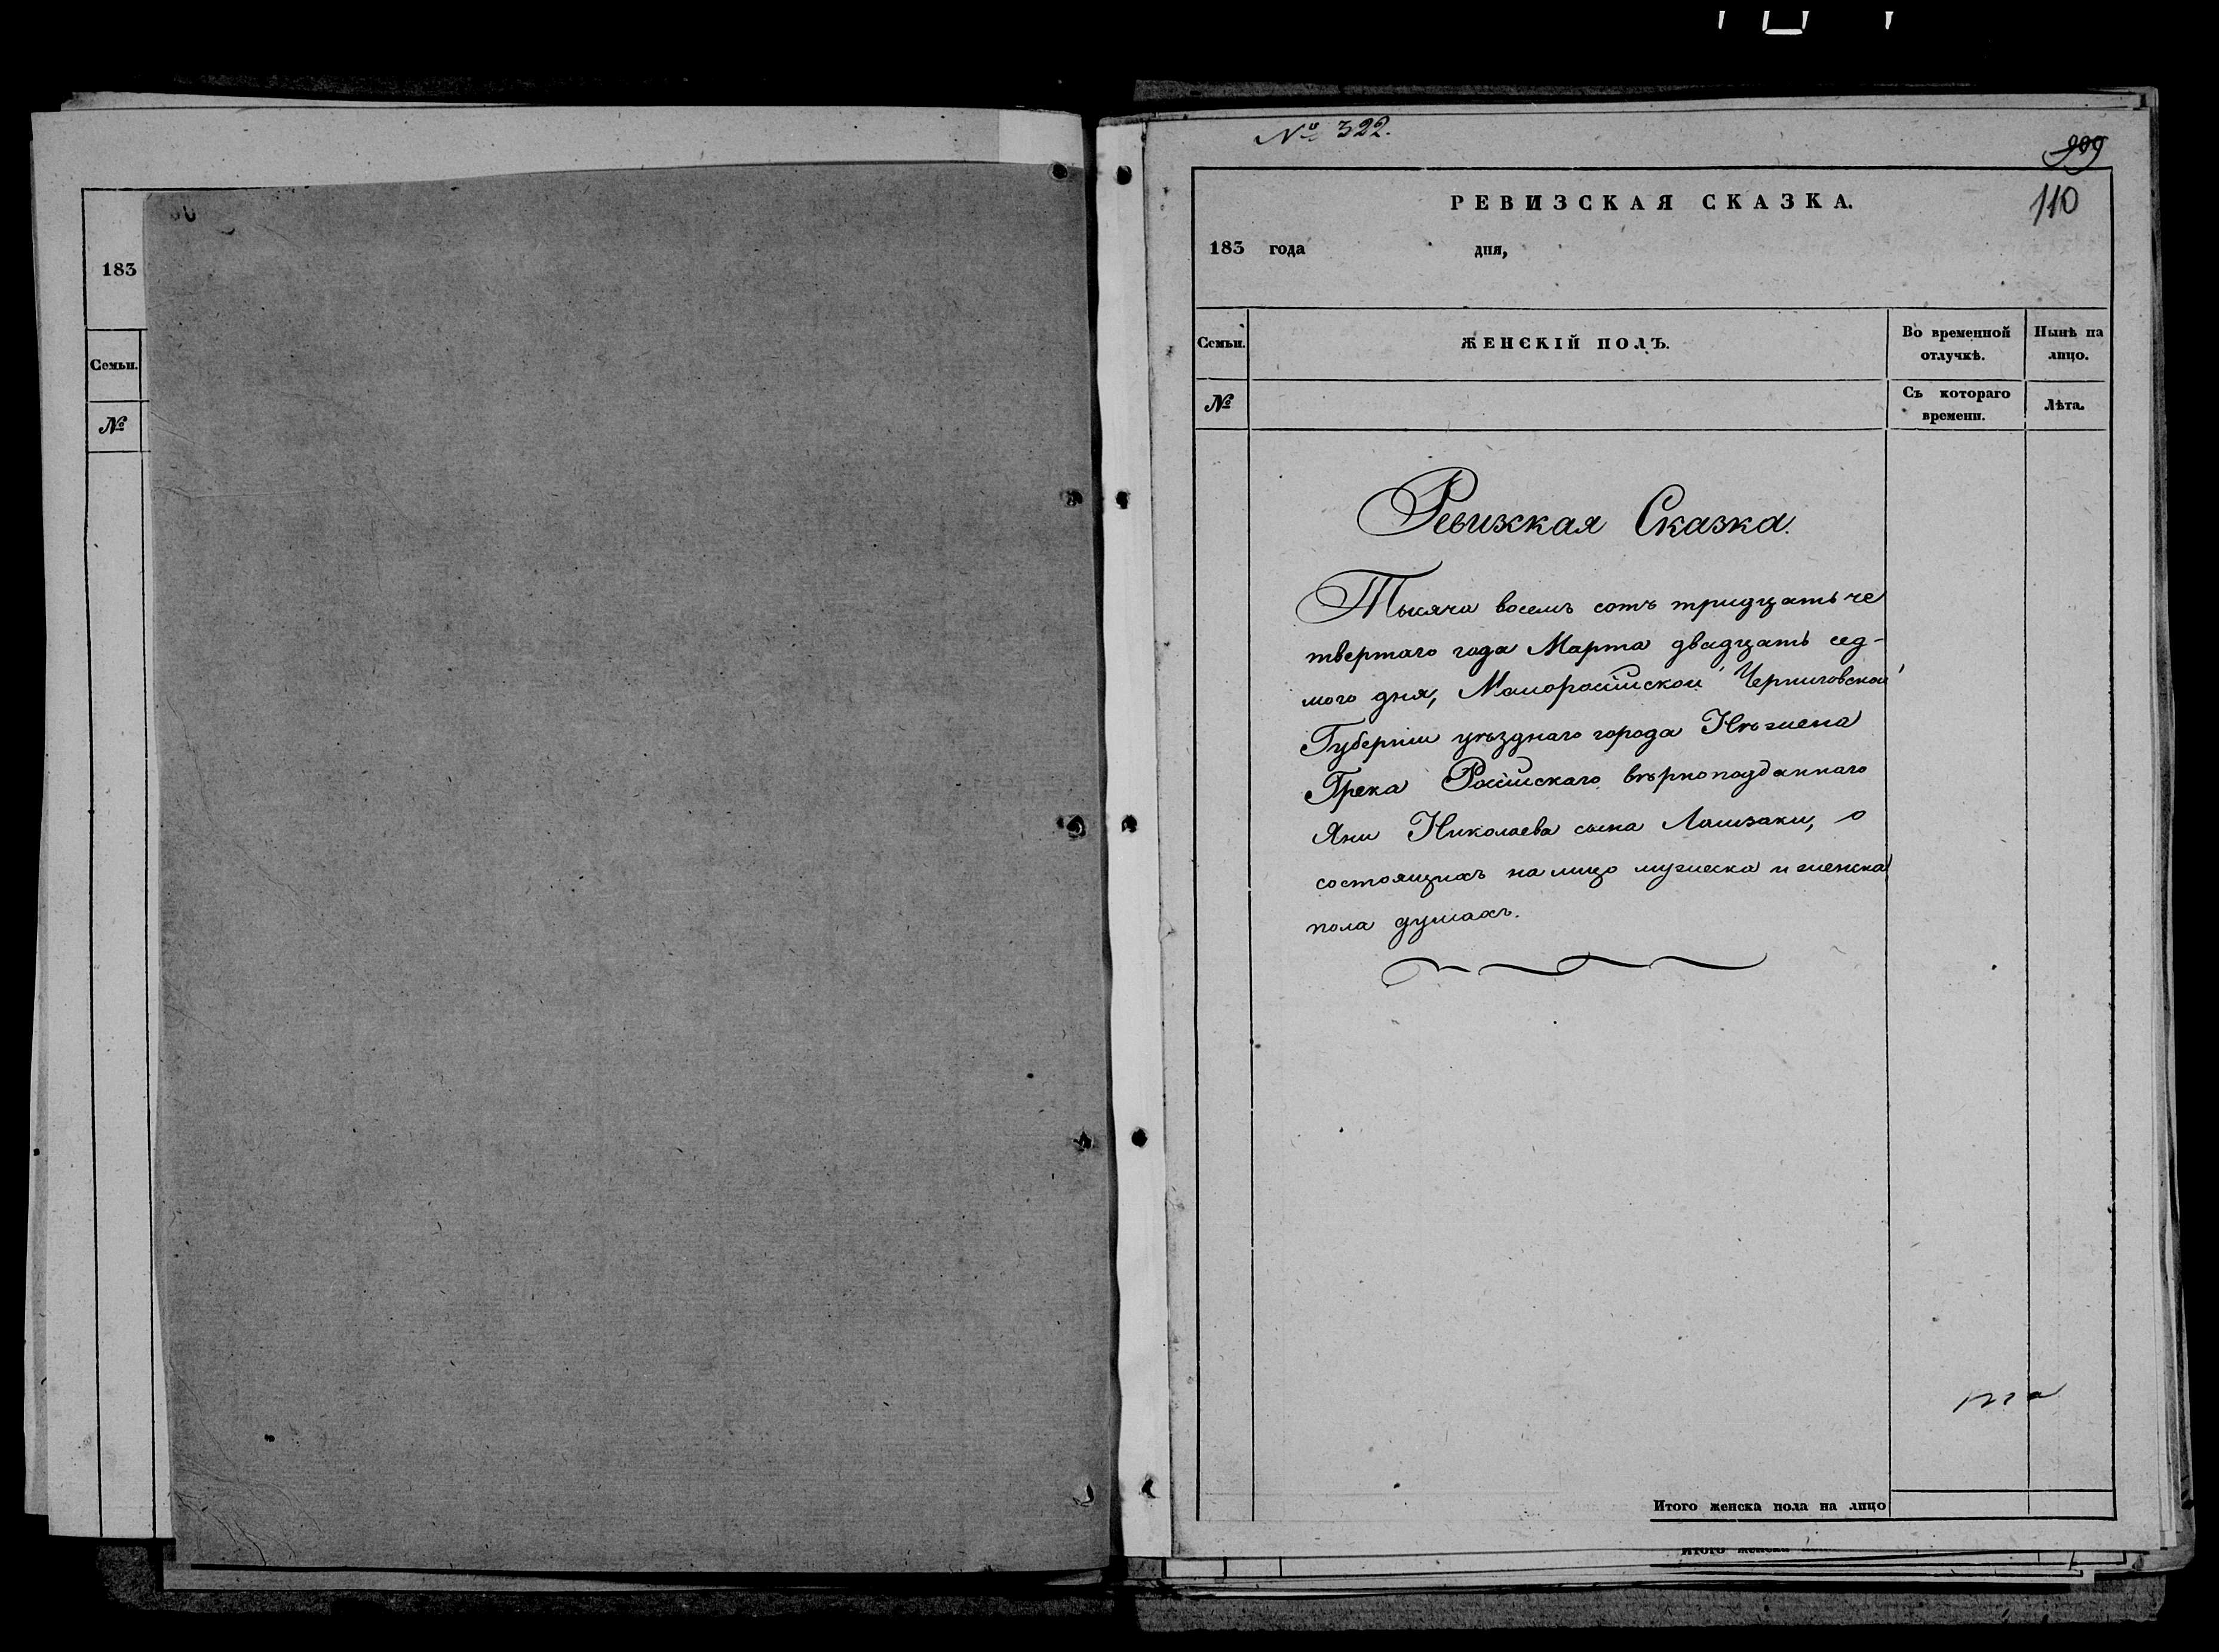 183
Семьи.
№
№ 322.
909
110
РЕВИЗСКАЯ СКАЗКА.
183 года дня,
Семьи. ЖЕНСКІЙ ПОЛЪ. Во временной отлучкѣ. Нынѣ на лицо.
№ Съ котораго времени. Лѣта.
Ревизкая Сказка.
Тысяча восемъ сотъ тридцать че
твертаго года Марта двадцать сед-
мого дня, Малоросійской Черниговской
Губерніи уѣзднаго города Нѣжена
Грека Російскаго вѣрноподданнаго
Яни Николаева сына
состоящихъ на лицо мужеска и женска
пола душахъ.
Итого женска пола на лицо